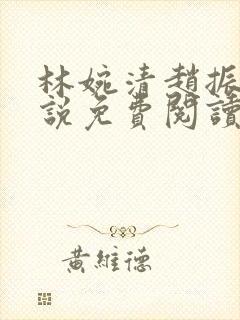 林婉清趙振
說免費閱讀
黃維德